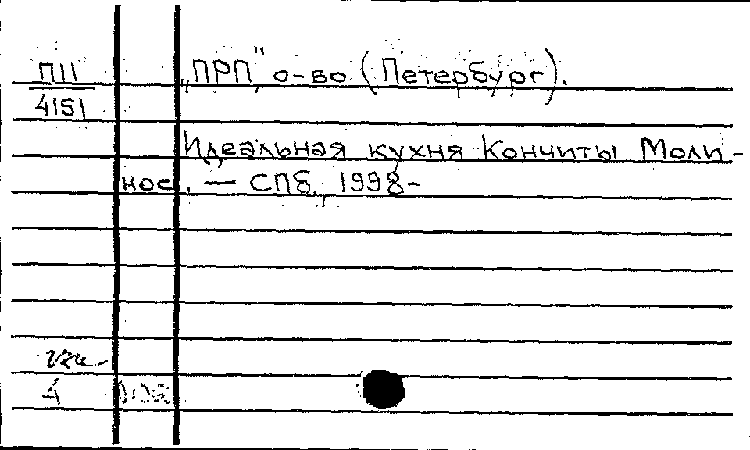 П11
4151
„ПРП", о-во (Петербург).
Идеальная кухня Кончиты Моли-
нос. — СПб., 1998-